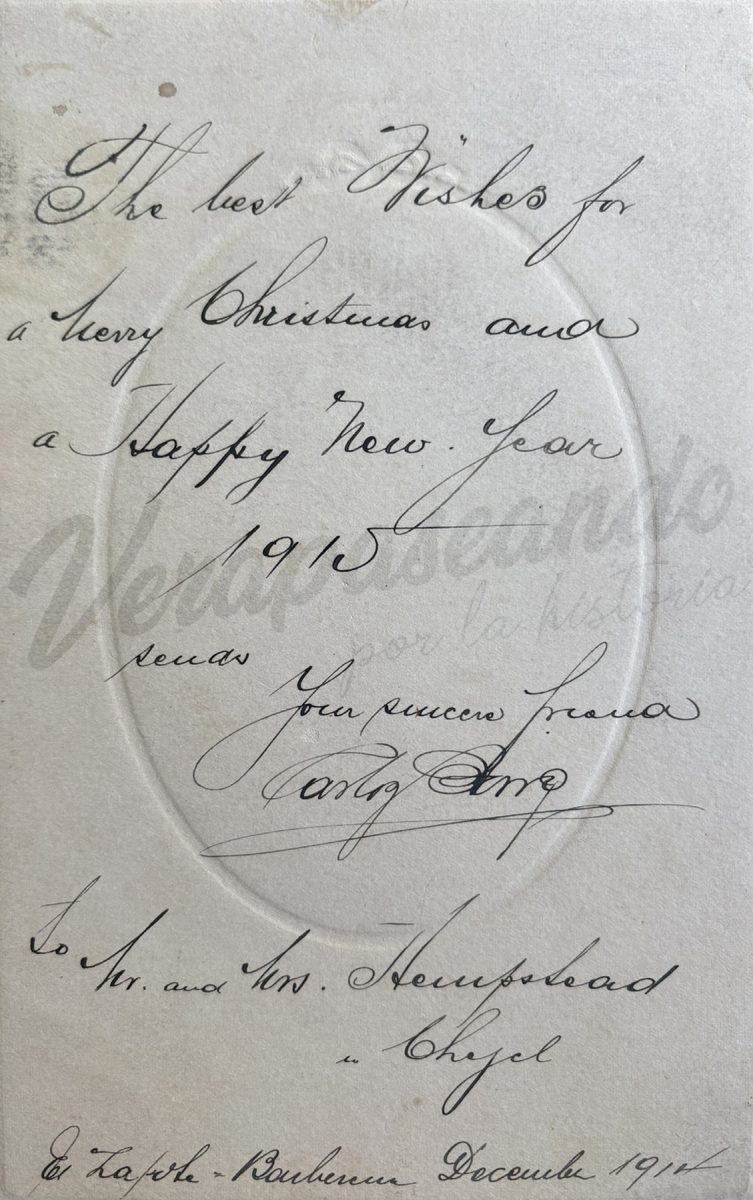 The best Wishes for
a merry Christmas and
a Happy New Year
1915
sends
Your sincere friend
Carlos
to Mr. and Mrs. Hempstead
in Chejel
El Zapote - Barberena December 1914
Verapaseando
por la historia